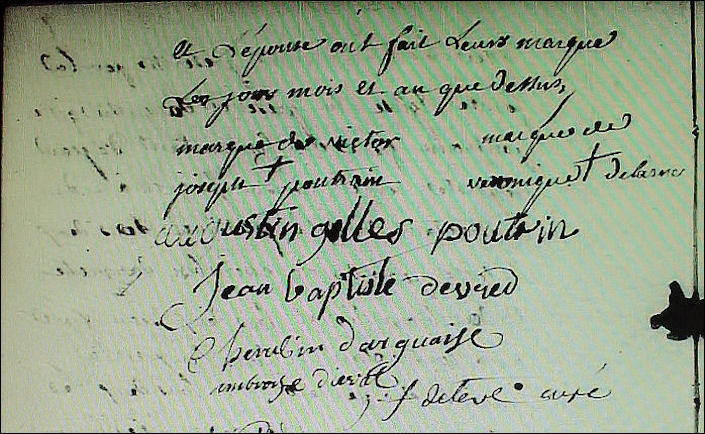 et L'épouse ont fait Leurs marque
Les jour mois et an que dessus,
marque de victor marque de
joseph † poutrain veronique † delarue
augustin gilles poutrin
Jean baptiste devred
Cherubin d'arguaise
ambroise
curé